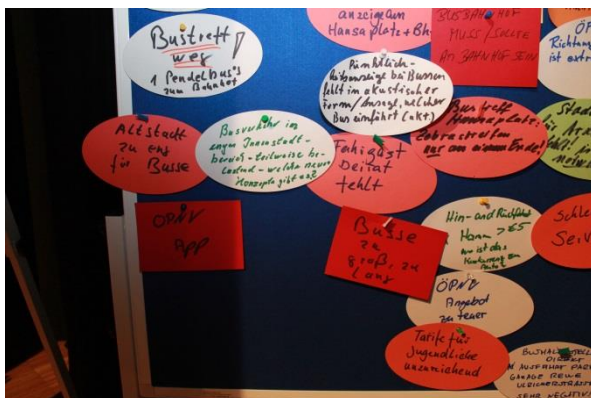 Bustreff
weg!
1 Pendelbus
zum Bahnhof
anzeigetafeln
Hansaplatz + Bhf
BUSBAHNHOF
MUSS / SOLLTE
AM BAHNHOF SEIN
ÖP
Richtung
ist
Pünktlich-
bei Bussen
fehlt in akustischer
Form / Ansage, welcher
Bus einfährt (akt.)
Altstadt
zu eng
für Busse
Busverkehr im
engen Innenstadt-
bereich teilweise be-
lastend - welche neuen
Konzepte gibt es?
Fahrgast
Beirat
fehlt
Bustreff
Hansaplatz:
Zebrastreifen
nur an einem Ende!
Stadt
ÖPNV
App
Busse
zu
groß, zu
lang
Hin- und Rückfahrt
Hamm > €5
wo ist das
Konkurrenz zum
Auto?
Schle
Ser
ÖPNV
Angebot
zu teuer
Tarife für
Jugendliche
unzureichend
BUSHALTESTELLE
DIREKT
AUSFAHRT PARK
GARAGE REWE
SEHR NEGATIV